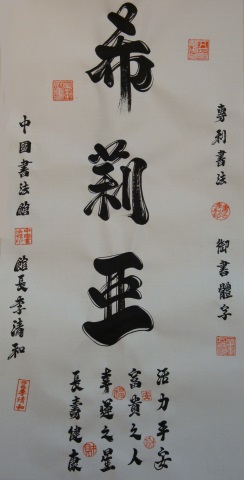 專利書法 御書體字
希莉亜
活力平安
富貴之人
幸運之星
長壽健康
中國書法館 館長李清和